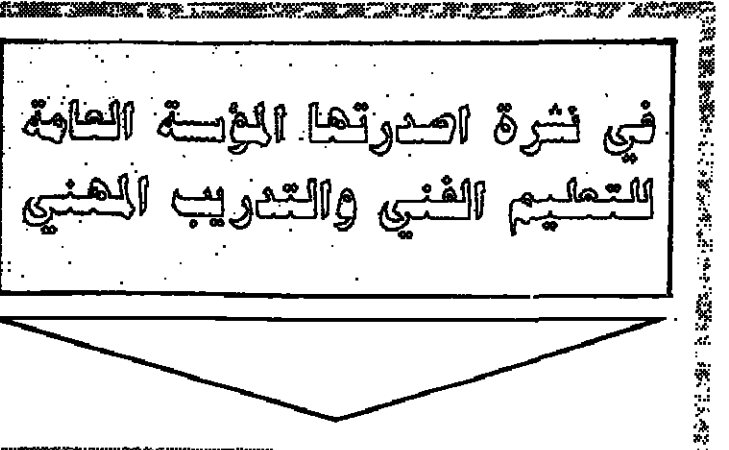 في نشرة اصدرتها المؤسة العامة
للتعليم الفني والتدريب المهني